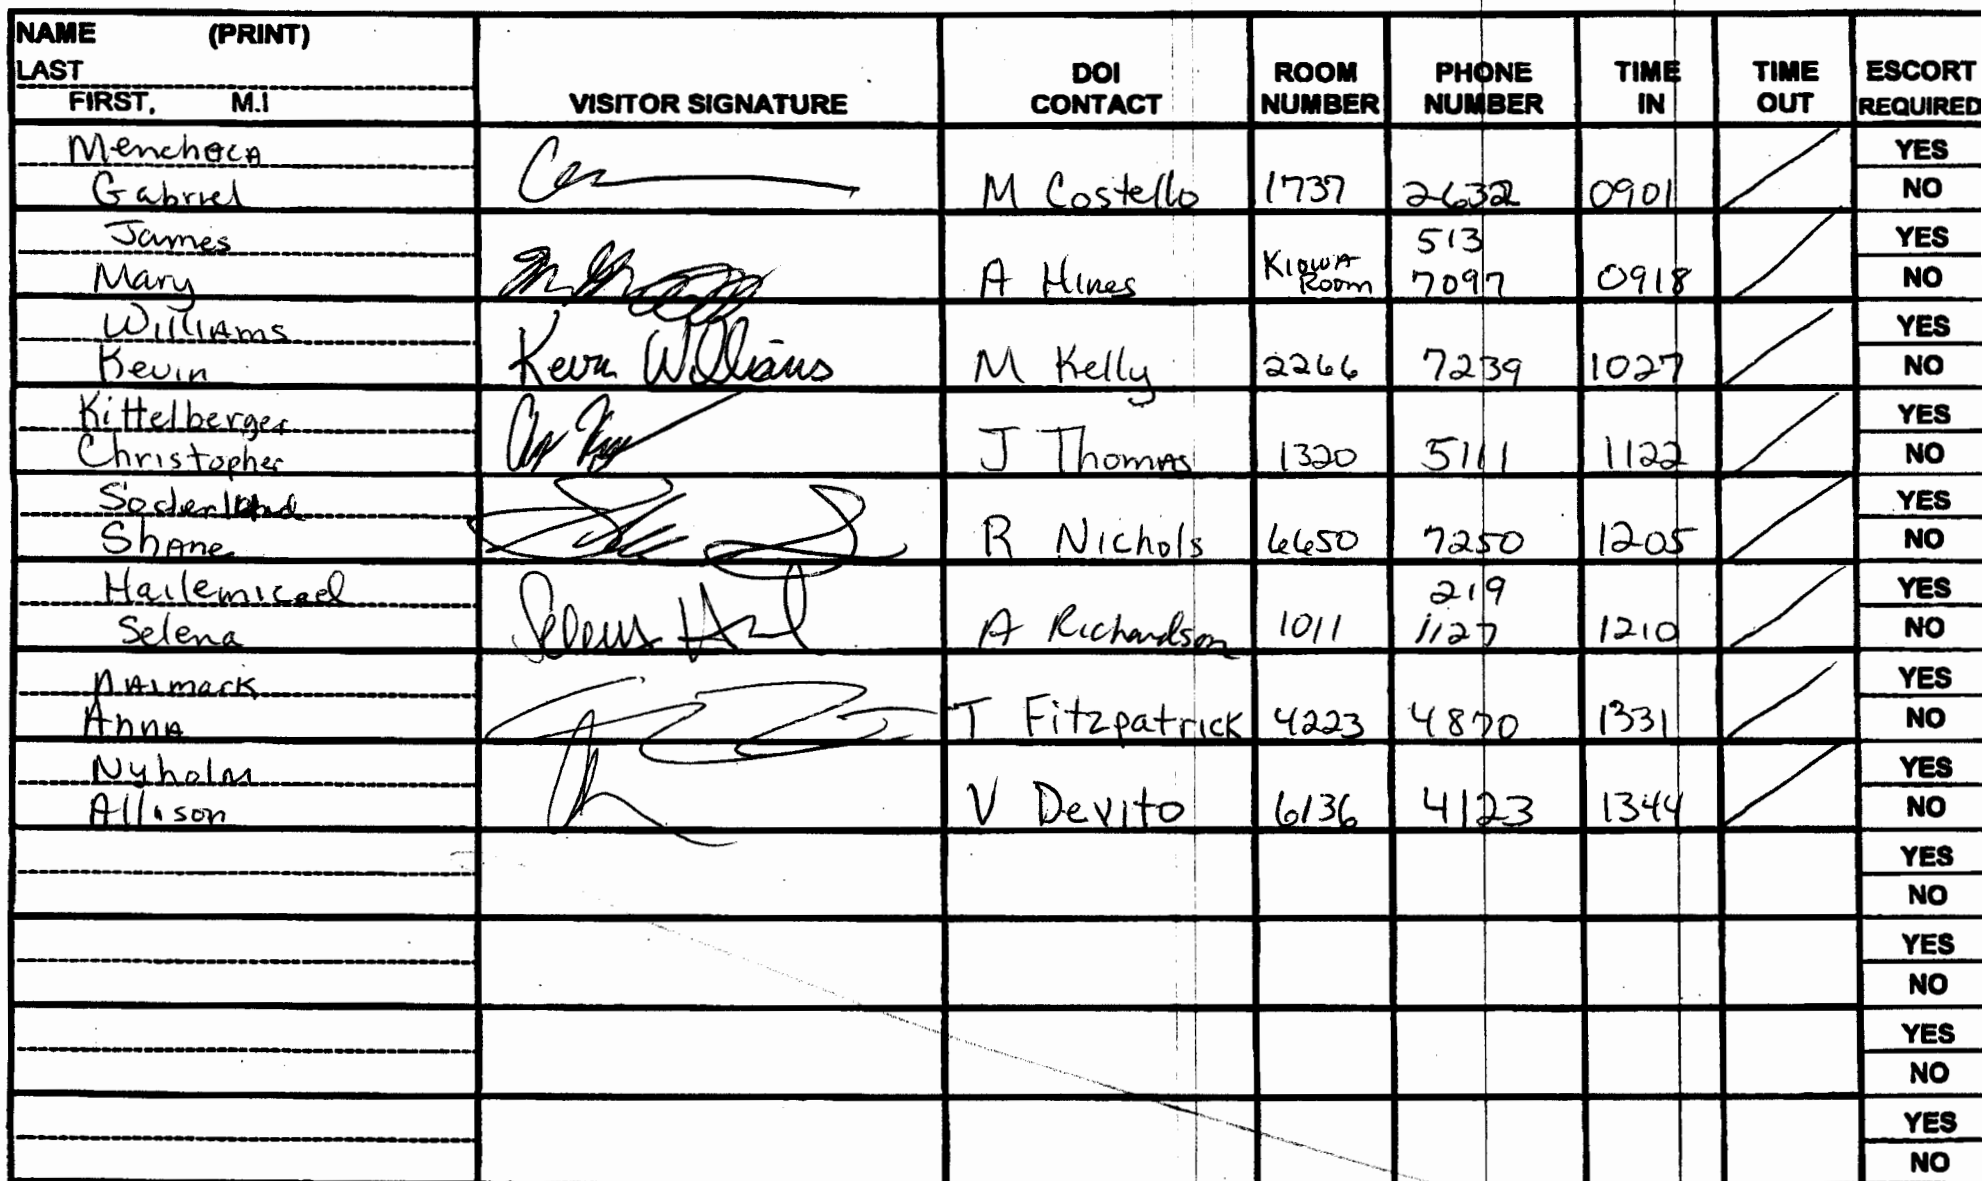 NAME (PRINT)
LAST
FIRST, M.I
VISITOR SIGNATURE
DOI CONTACT
ROOM NUMBER
PHONE NUMBER
TIME IN
TIME OUT
ESCORT REQUIRED
Menchaca
Gabriel M Costello 1737 2632 0901 YES NO
James
Mary A Hines Kiowa Room 513 7097 0918 YES NO
Williams
Kevin Kevin Williams M Kelly 2266 7239 1027 YES NO
Kittelberger
Christopher J Thomas 1320 5111 1122 YES NO
Shane R Nichols 6650 7250 1205 YES NO
Hailemicael
Selena A Richardson 1011 219 1127 1210 YES NO
Anna T Fitzpatrick 4223 4870 1331 YES NO
Nyholm
Allison V Devito 6136 4123 1344 YES NO
YES
NO
YES
NO
YES
NO
YES
NO